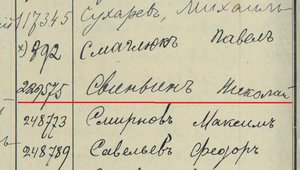 117345 Сухаревъ, Михаилъ
x) 892 Смаглюкъ Павелъ
229575 Свиньинъ Николай
248773 Смирновъ Максимъ
248789 Савельевъ Федоръ